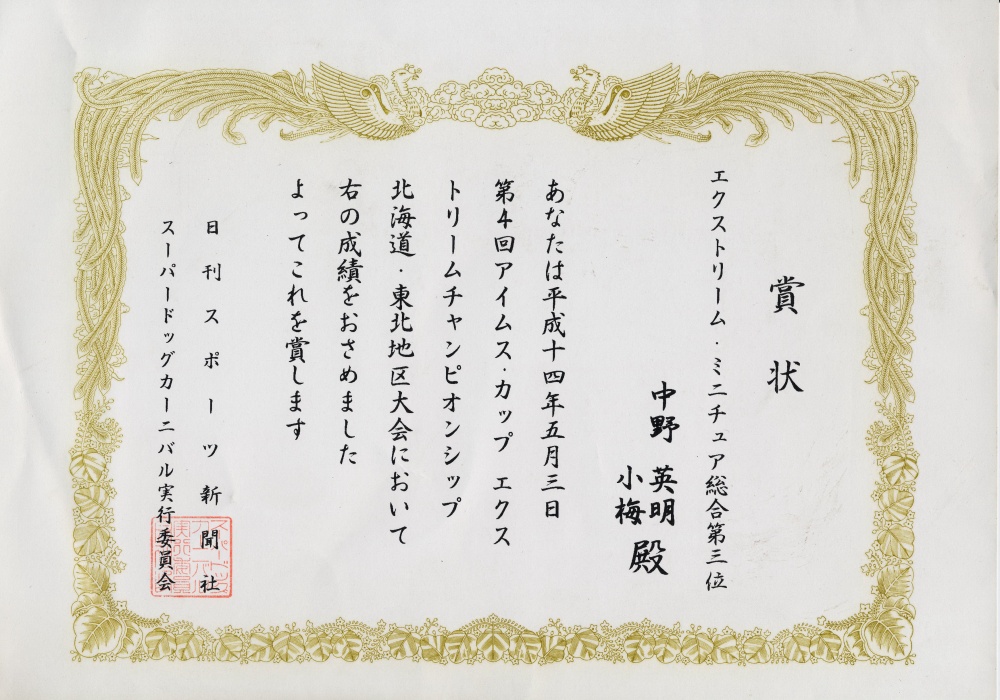 賞状
エクストリーム・ミニチュア総合第三位
中野 英明
小梅 殿
あなたは平成十四年五月三日
第4回アイムス・カップ エクス
トリームチャンピオンシップ
北海道・東北地区大会において
右の成績をおさめました
よってこれを賞します
日刊スポーツ新聞社
スーパードッグカーニバル実行委員会